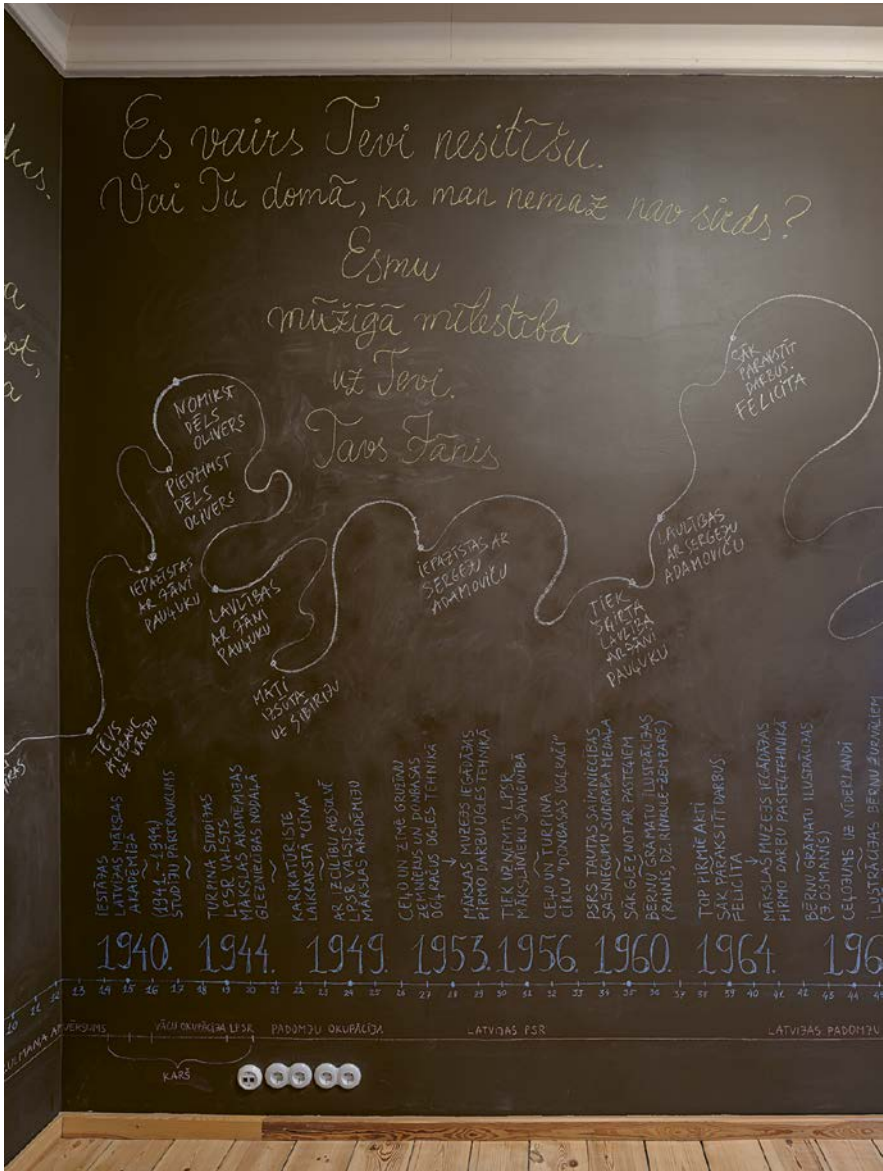 Es vairs Tevi nesitīšu.
Vai Tu domā, ka man nemaz nav sirds?
Esmu
mūžīgā mīlestība
uz Tevi.
Tavs Jānis
TĒVS
AIZBRAUC
UZ VĀCIJU
IEPAZĪSTAS
AR JĀNI
PAUĻUKU
PIEDZIMST
DĒLS
OLIVERS
NOMIRST
DĒLS
OLIVERS
LAULĪBAS
AR JĀNI
PAUĻUKU
MĀTI
IZSŪTA
UZ SIBĪRIJU
IEPAZĪSTAS AR
SERGEJU
ADAMOVIČU
TIEK
ŠĶIRTA
LAULĪBA
AR JĀNI
PAUĻUKU
LAULĪBAS
AR SERGEJU
ADAMOVIČU
SĀK
PARAKSTĪT
DARBUS-
FELICITA
IESTĀJAS
LATVIJAS MĀKSLAS
AKADĒMIJĀ
(1941.-1944.)
STUDIJU PĀRTRAUKUMS
TURPINA STUDIJAS
LPSR VALSTS
MĀKSLAS AKADĒMIJAS
GLEZNIECĪBAS NODAĻĀ
KARIKATŪRISTE
LAIKRAKSTĀ "CĪŅA"
AR IZCILĪBU ABSOLVĒ
LPSR VALSTS
MĀKSLAS AKADĒMIJU
CEĻO UN ZĪMĒ GRUZĪNU
ZEMNIEKUS UN DONBASAS
OGĻRAČUS OGLES TEHNIKĀ
MĀKSLAS MUZEJS IEGĀDĀJAS
PIRMO DARBU OGLES TEHNIKĀ
TIEK UZŅEMTA LPSR
MĀKSLINIEKU SAVIENĪBĀ
CEĻO UN TURPINA
CIKLU "DONBASAS OGĻRAČI"
PSRS TAUTAS SAIMNIECĪBAS
SASNIEGUMU SUDRABA MEDAĻA
SĀK GLEZNOT AR PASTEĻIEM
BĒRNU GRĀMATU ILUSTRĀCIJAS
(RAINIS, DZ. RINKULE-ZEMZARE)
TOP PIRMIE AKTI
SĀK PARAKSTĪT DARBUS
FELICITA
MĀKSLAS MUZEJS IEGĀDĀJAS
PIRMO DARBU PASTEĻTEHNIKĀ
BĒRNU GRĀMATU ILUSTRĀCIJAS
(J. OSMANIS)
CEĻOJUMS UZ NĪDERLANDI
ILUSTRĀCIJAS BĒRNU ŽURNĀLIEM
1940. 1944. 1949. 1953. 1956. 1960. 1964. 196
10 11 12 13 14 15 16 17 18 19 20 21 22 23 24 25 26 27 28 29 30 31 32 33 34 35 36 37 38 39 40 41 42 43 44 45
ULMAŅA APVĒRSUMS VĀCU OKUPĀCIJA LPSR PADOMJU OKUPĀCIJA LATVIJAS PSR LATVIJAS PADOMJU
KARŠ